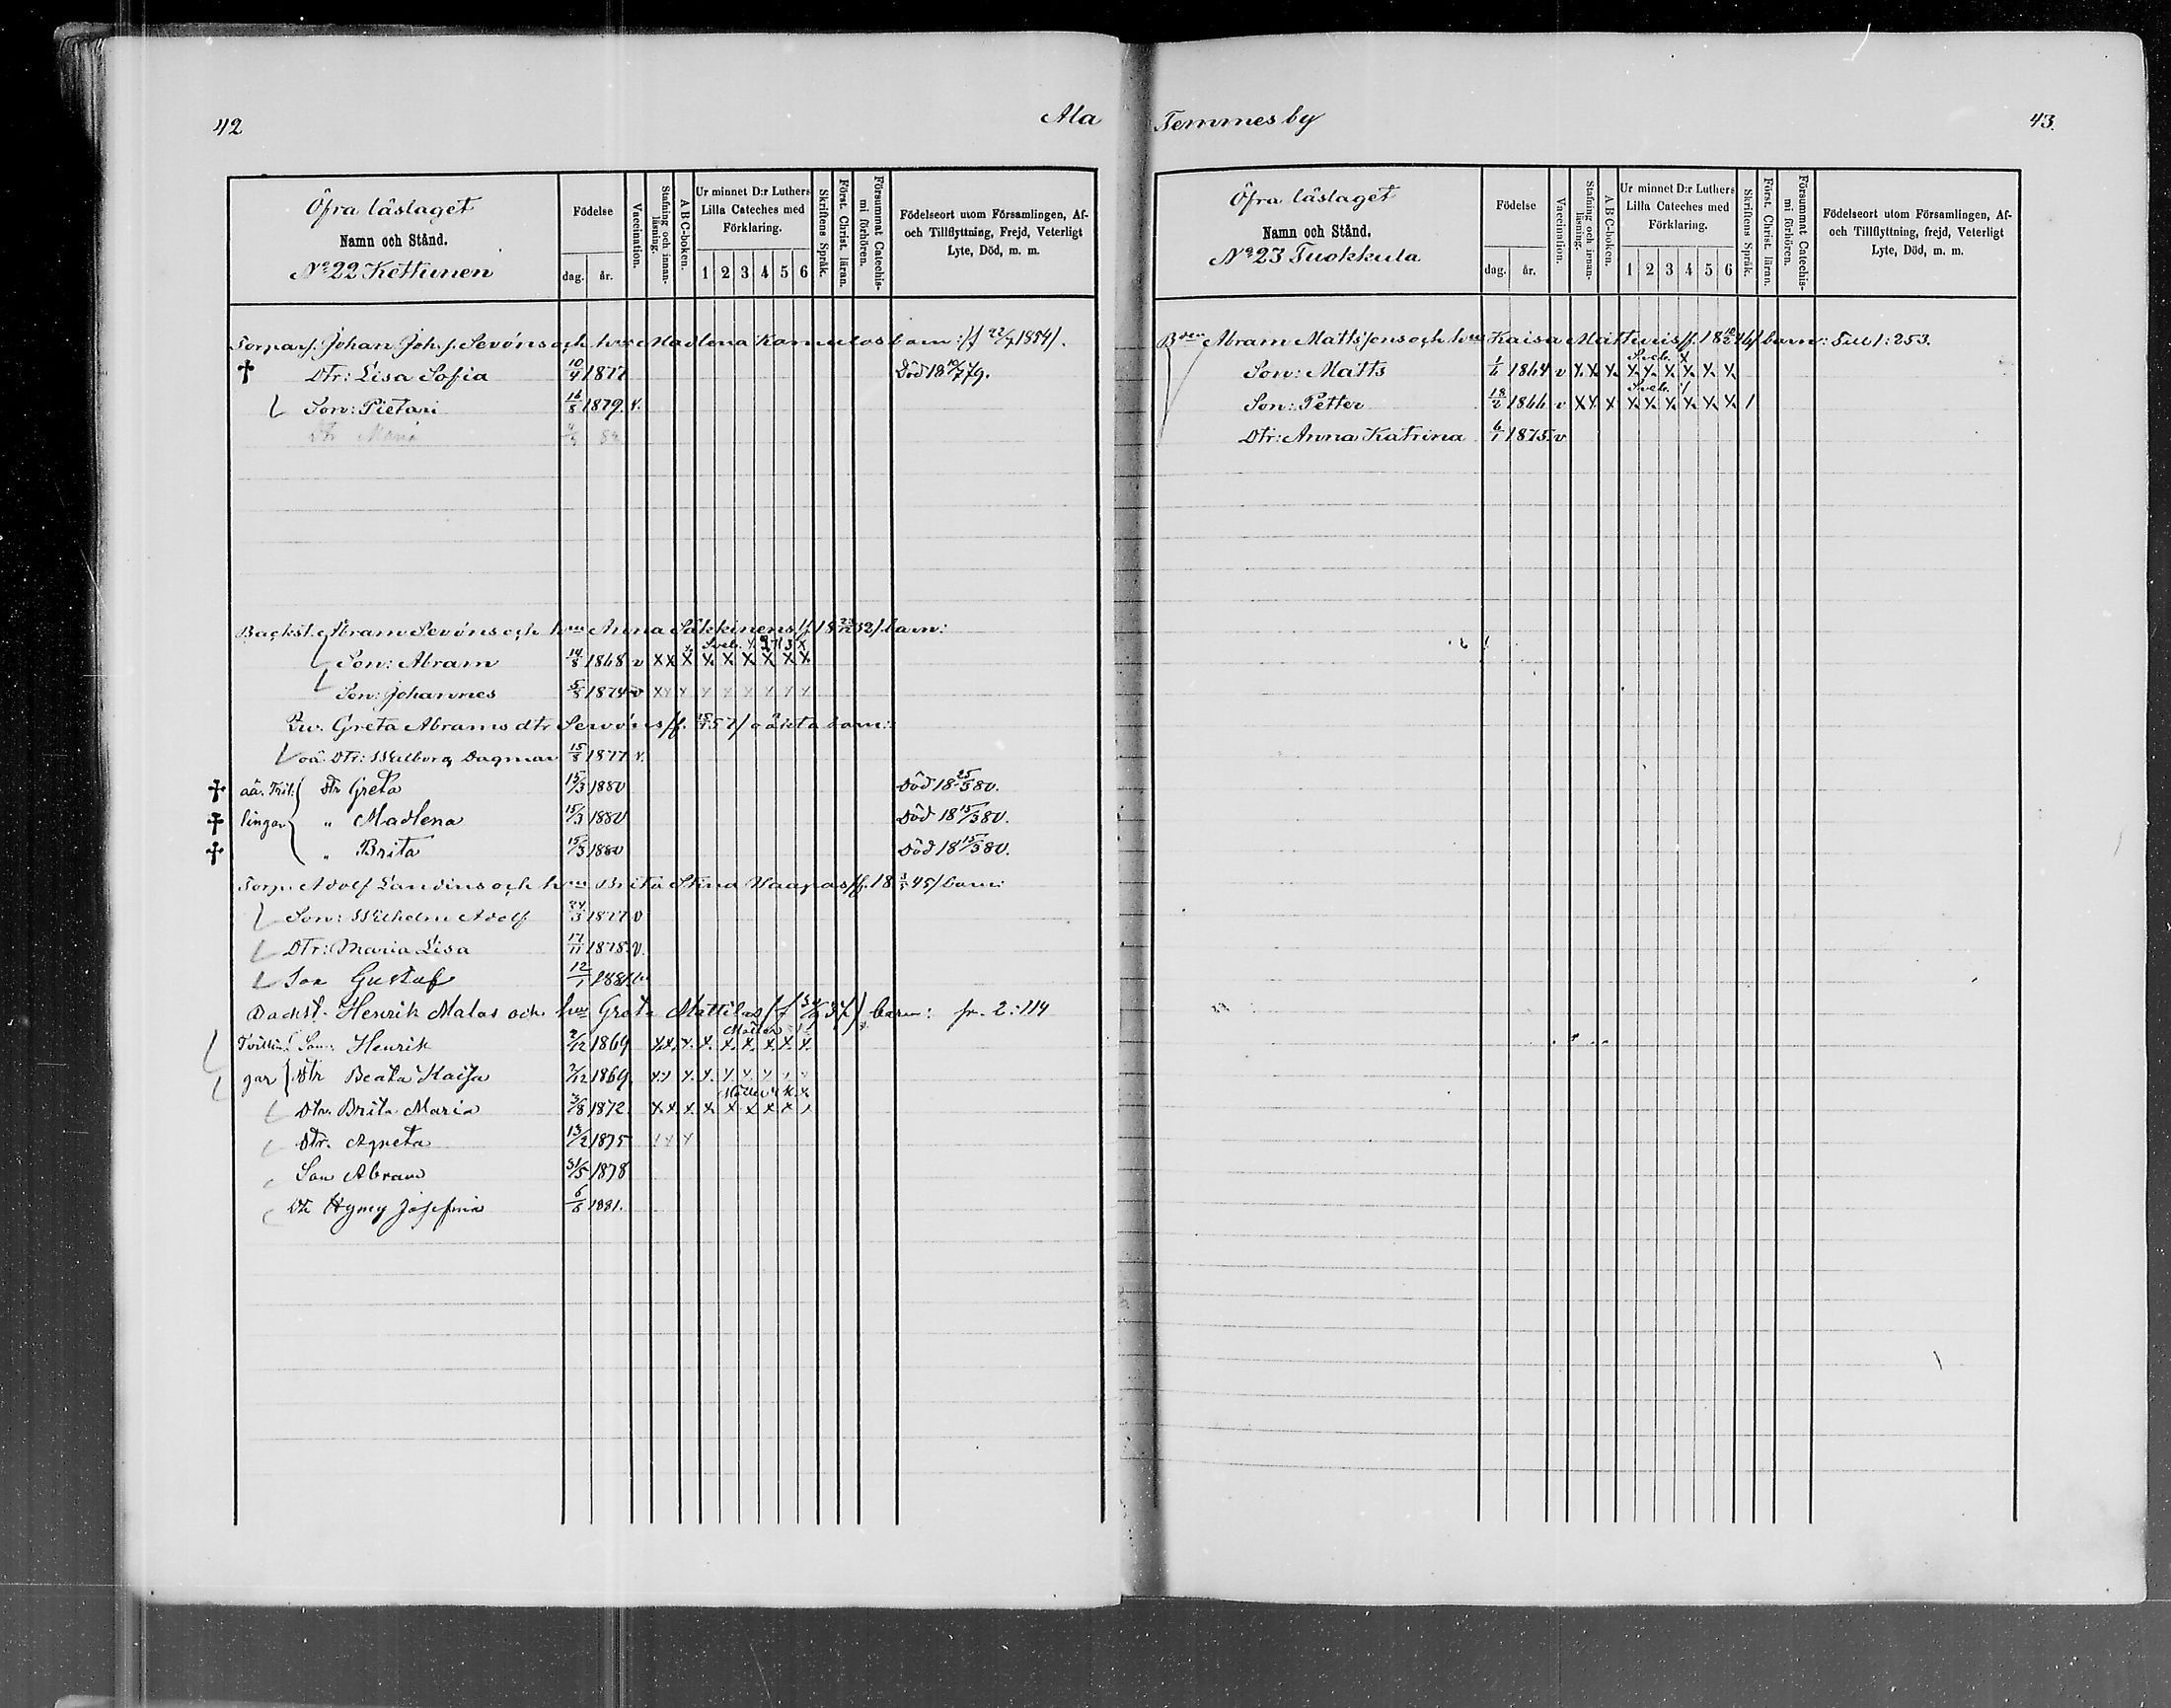 42
Ala
Öfra läslaget
Namn och Stånd.
No 22 Kettunen
Födelse
dag. år.
Vaccination.
Stafning och innan-läsning.
A B C-boken.
Ur minnet D:r Luthers
Lilla Cateches med
Förklaring.
1 2 3 4 5 6
Skriftens Språk.
Först. Christ. läran.
Försummat Catechis-mi förhören.
Födelseort utom Församlingen, Af-
och Tillflyttning, Frejd, Veterligt
Lyte, Död, m. m.
Torparf. Johan Joh. f. Sevóns och hus Madlena barn: /f 22/7 1854/.
Dtr: Lisa Sofia 10/4 1877 Död 18 79.
Son: Pietari 16/8 1879. v.
Dtr Maria
Backst. Abram Sevóns och hus Anna Säkkinens /f 18 32/ barn:
Sveb.
Son: Abram 14/8 1868 v x x x x x x x x x
Son: Johannes 5/8 1874 v x x x x x x x x x
Greta Abrams dtr Sevóns /f. 57/ oäkta barn:
oä. Dtr: Wilborg Dagmar 15/8 1877 v.
oä. Tril: Dtr Greta 15/3 1880 Död 18 25/3 80.
lingar " Madlena 15/3 1880 Död 18 15/3 80.
" Brita 15/3 1880 Död 18 15/3 80.
Torp. Adolf Landins och hus Brita Stina Haapas /f. 18 45/ barn:
Son: Wilhelm Adolf 24/3 1877 v
Dtr: Maria Lisa 17/11 1878. v.
Son Gustaf 12/1 1881
Backst. Henrik Malas och hus Greta Mattilas /f 37/ barn: fr. 2:114
Möller
Tvillin- Son: Henrik 2/12 1869 x x x x x x x x x
gar Dtr Beata Kaisa 2/12 1869.
Möller
Dtr. Brita Maria 3/8 1872. x x x x x x x x
Dtr. Agneta 13/2 1875
Son Abram 31/5 1878
Dtr Hymy Josefina 6/6 1881.
Temmes by
43.
Öfra läslaget
Namn och Stånd.
No 23 Tuokkula
Födelse
dag. år.
Vaccination.
Stafning och innan-läsning.
A B C-boken.
Ur minnet D:r Luthers
Lilla Cateches med
Förklaring.
1 2 3 4 5 6
Skriftens Språk.
Först. Christ. läran.
Försummat Catechis-mi förhören.
Födelseort utom Församlingen, Af-
och Tillflyttning, frejd, Veterligt
Lyte, Död, m. m.
Abram Mattssons och hus Kaisa 46/ barn: Till 1: 253.
Sveb. x
Son: Matts 1864 v x x x x x x x x x
Sveb.
Son: Petter 1866 v x x x x x x x x x /
Dtr: Anna Katrina 6/1 1875. v.